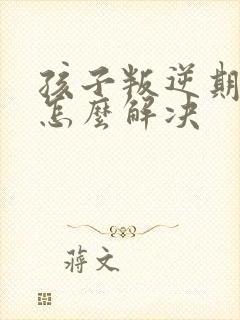 孩子叛逆期
怎麼解决
蔣文